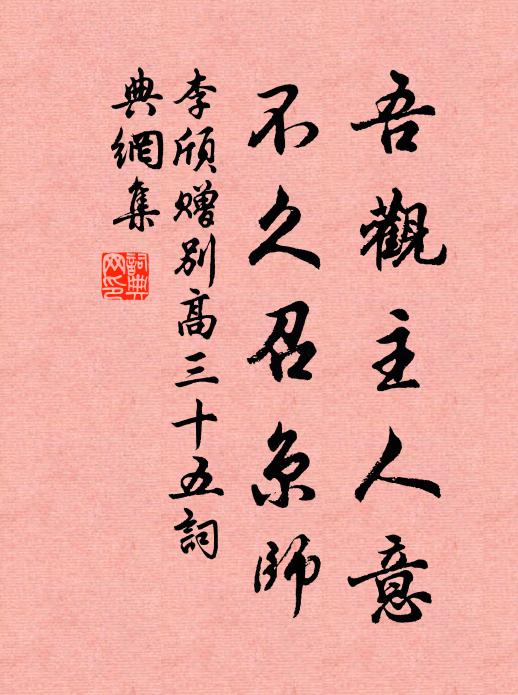 吾觀主人意
不久召京師
李頎贈別高三十五詞
典網集
詞典網印